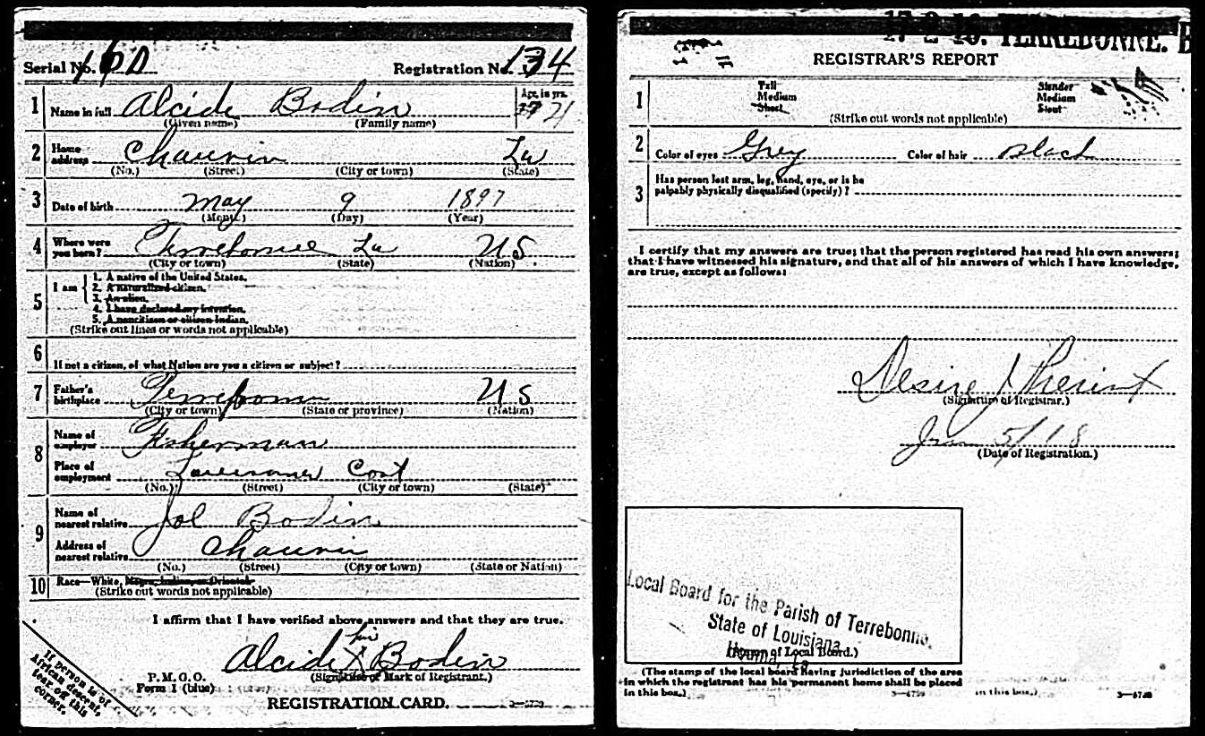 Serial No. 160 Registration No. 134
1 Name in full Alcide Bodin Age, in yrs. 21
(Given name) (Family name)
2 Home address Chauvin La
(No.) (Street) (City or town) (State)
3 Date of birth May 9 1897
(Month) (Day) (Year)
4 Where were you born? Terrebonne La U.S.
(City or town) (State) (Nation)
5 I am
1. A native of the United States.
2. A naturalized citizen.
3. An alien.
4. I have declared my intention.
5. A noncitizen or citizen Indian.
(Strike out lines or words not applicable)
6 If not a citizen, of what Nation are you a citizen or subject?
7 Father's birthplace Terrebonne U S
(City or town) (State or province) (Nation)
8 Name of employer Fisherman
Place of employment Cost
(No.) (Street) (City or town) (State)
9 Name of nearest relative Jol Bodin
Address of nearest relative Chauvin
(No.) (Street) (City or town) (State or Nation)
10 Race—White, Negro, Indian, or Oriental
(Strike out words not applicable)
I affirm that I have verified above answers and that they are true.
Alcide X Bodin
(Signature of Mark of Registrant.)
P. M. G. O.
Form 1 (blue)
REGISTRATION CARD.
If person is of
African descent,
tear off this
corner.
17-2-16. TERREBONNE.
REGISTRAR'S REPORT
1 Tall Slender
Medium Medium
Short Stout
(Strike out words not applicable)
2 Color of eyes Grey Color of hair Black
3 Has person lost arm, leg, hand, eye, or is he
palpably physically disqualified (specify)?
I certify that my answers are true; that the person registered has read his own answers;
that I have witnessed his signature, and that all of his answers of which I have knowledge,
are true, except as follows:
Desire J Theriot
(Signature of Registrar.)
Jun 5/18
(Date of Registration.)
Local Board for the Parish of Terrebonne,
State of Louisiana
Houma, La
(Stamp of Local Board.)
(The stamp of the local board having jurisdiction of the area
in which the registrant has his permanent home shall be placed
in this box.)